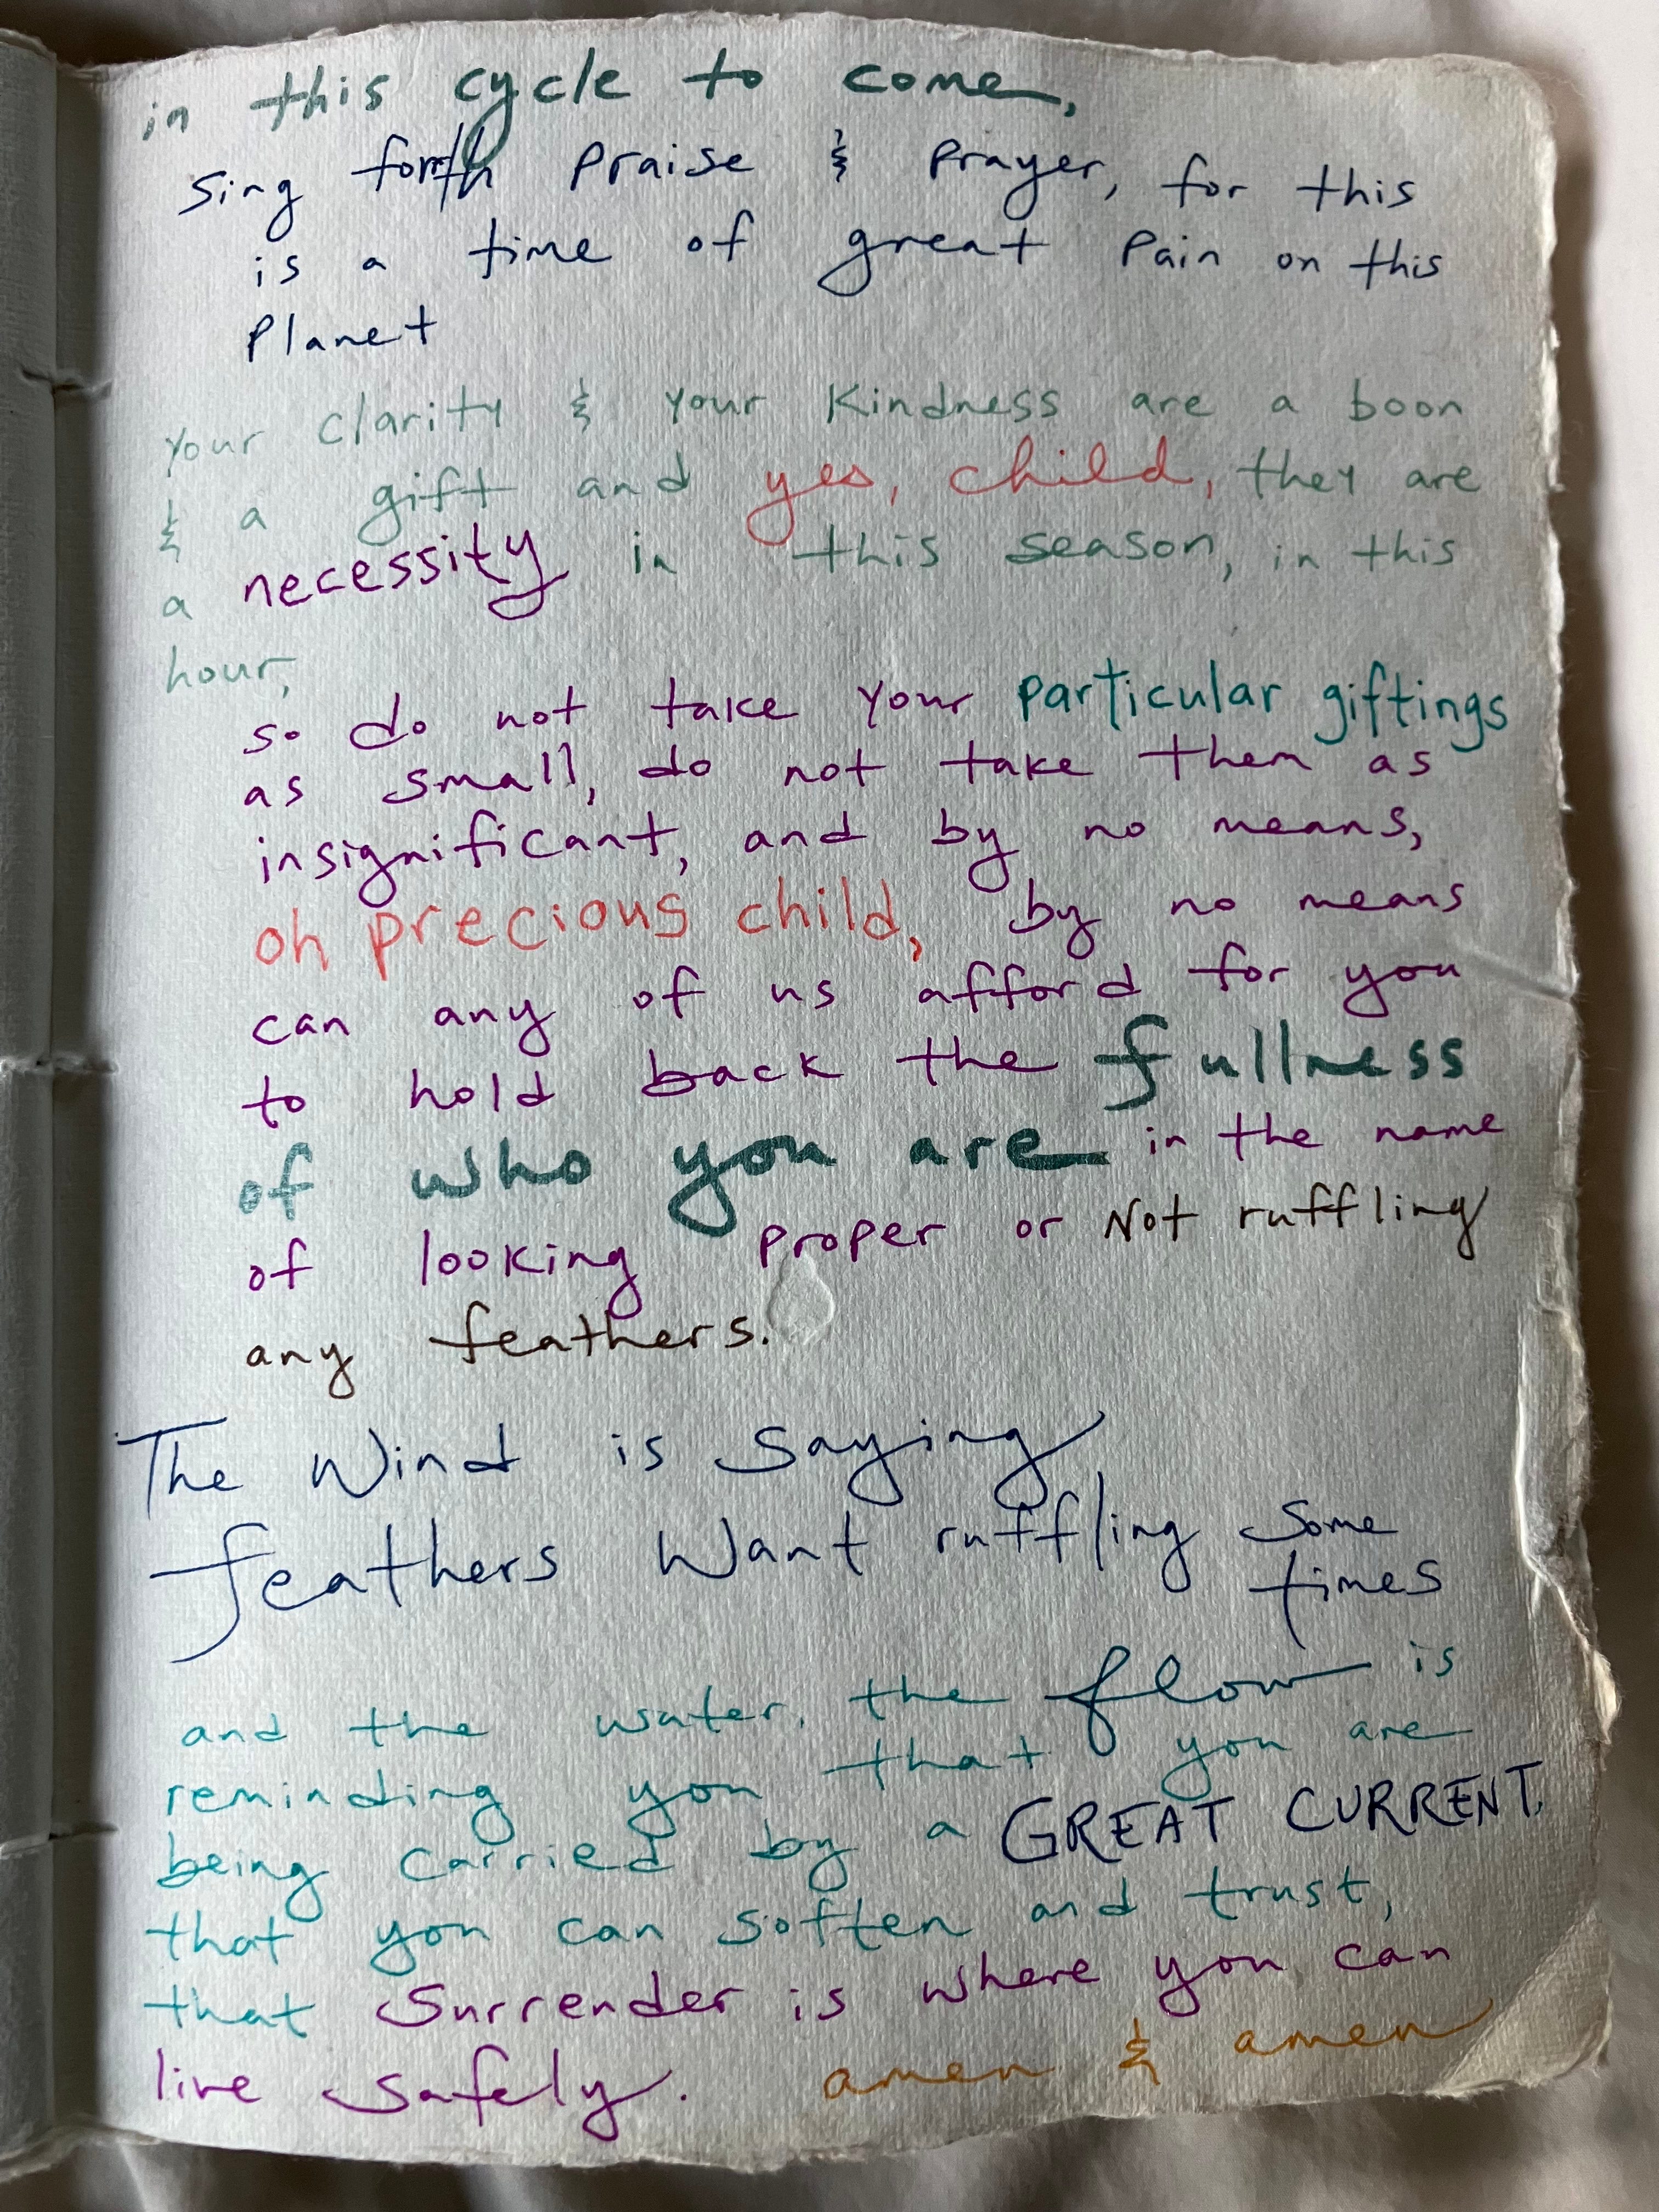 in this cycle to come,
Sing forth praise & prayer, for this
is a time of great pain on this
planet
your clarity & your kindness are a boon
& a gift and yes, child, they are
a necessity in this season, in this
hour,
so do not take your particular giftings
as small, do not take them as
insignificant, and by no means,
oh precious child, by no means
can any of us afford for you
to hold back the fullness
of who you are in the name
of looking proper or Not ruffling
any feathers.
The Wind is saying
feathers want ruffling some
times
and the water, the flow is
reminding you that you are
being carried by a GREAT CURRENT,
that you can soften and trust,
that surrender is where you can
live safely. amen & amen